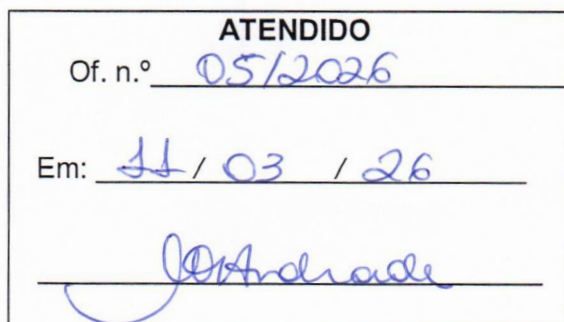 ATENDIDO
Of. n.º 05/2026
Em: 11 / 03 / 26
JOAndrade